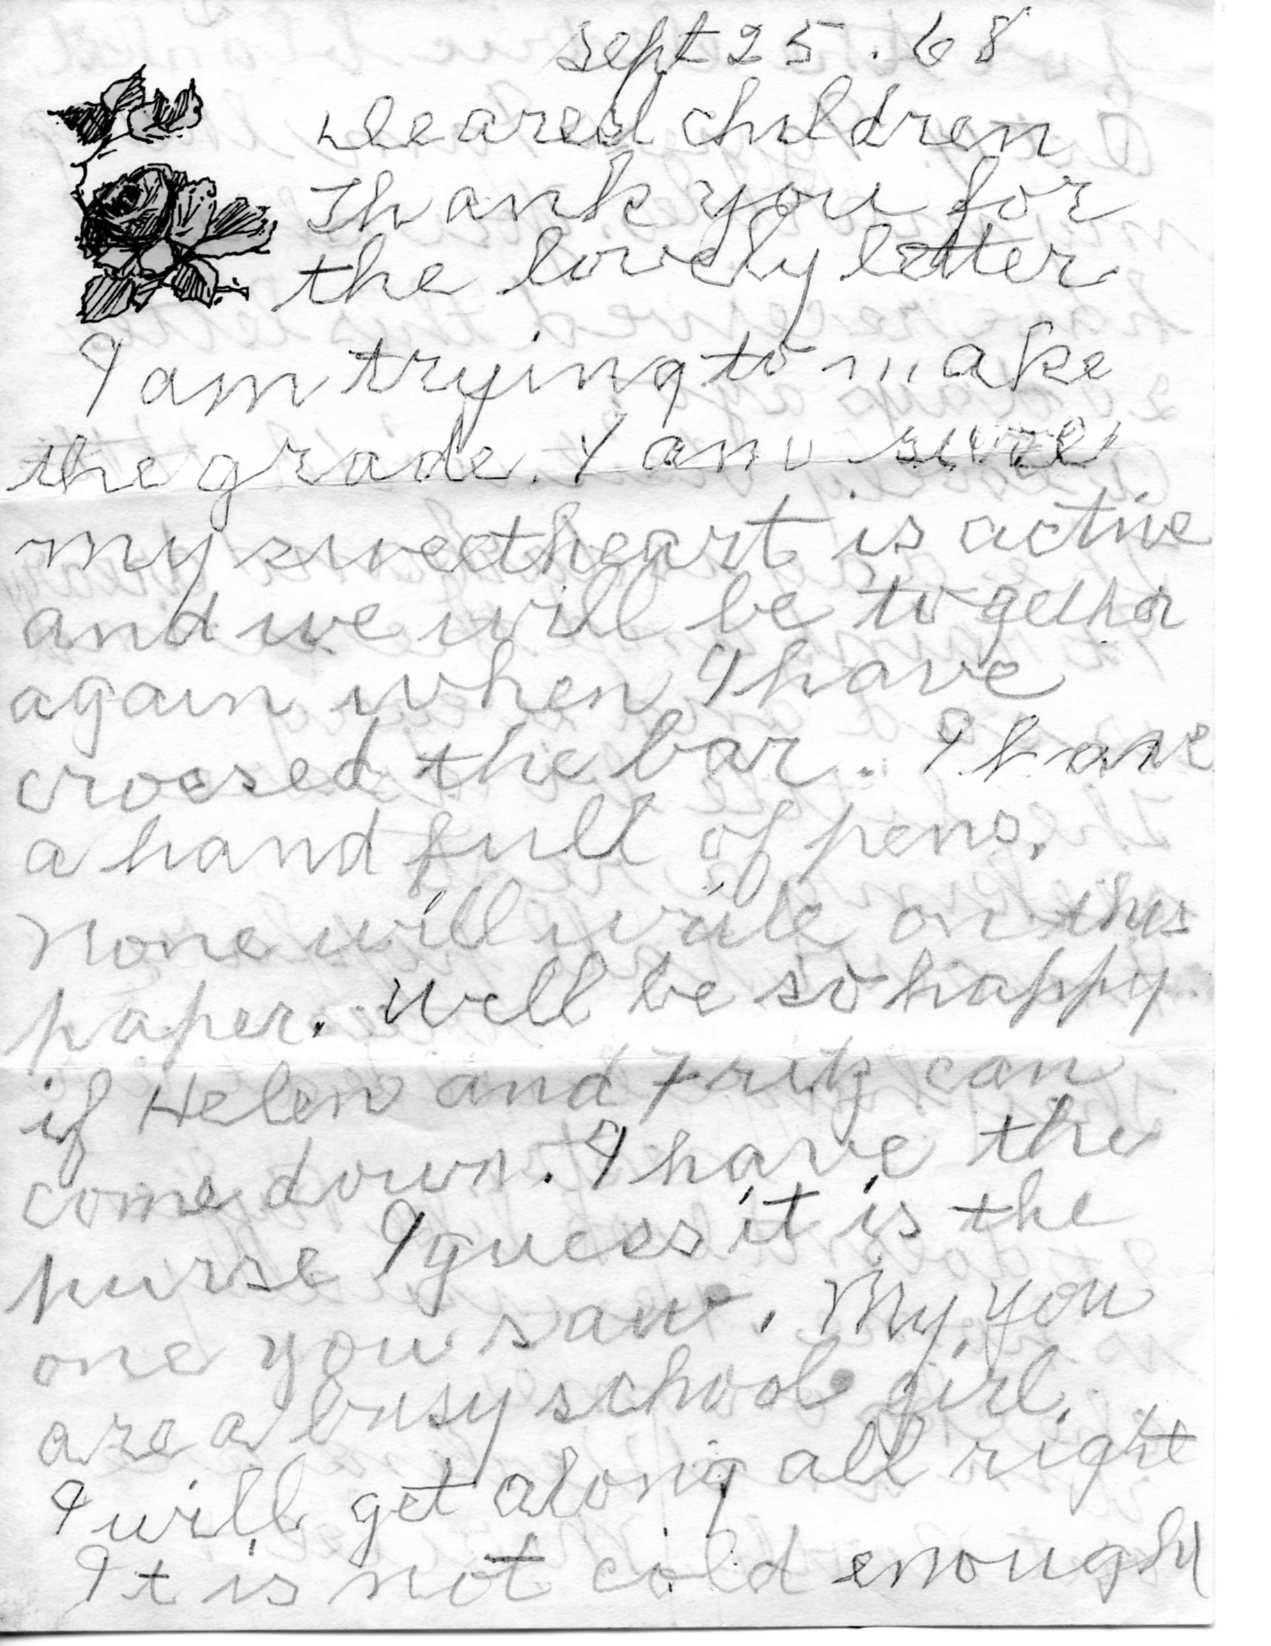 Sept 25. 68
Deared children
Thank you for
the lovely letter
I am trying to make
the grade. I am sure
my sweetheart is active
and we will be together
again when I have
crossed the bar. I have
a hand full of pens.
None will write on this
paper. Will be so happy
if Helen and Fritz can
come down. I have the
purse I guess it is the
one you saw. My you
are a busy school girl.
I will get along all right
It is not cold enough